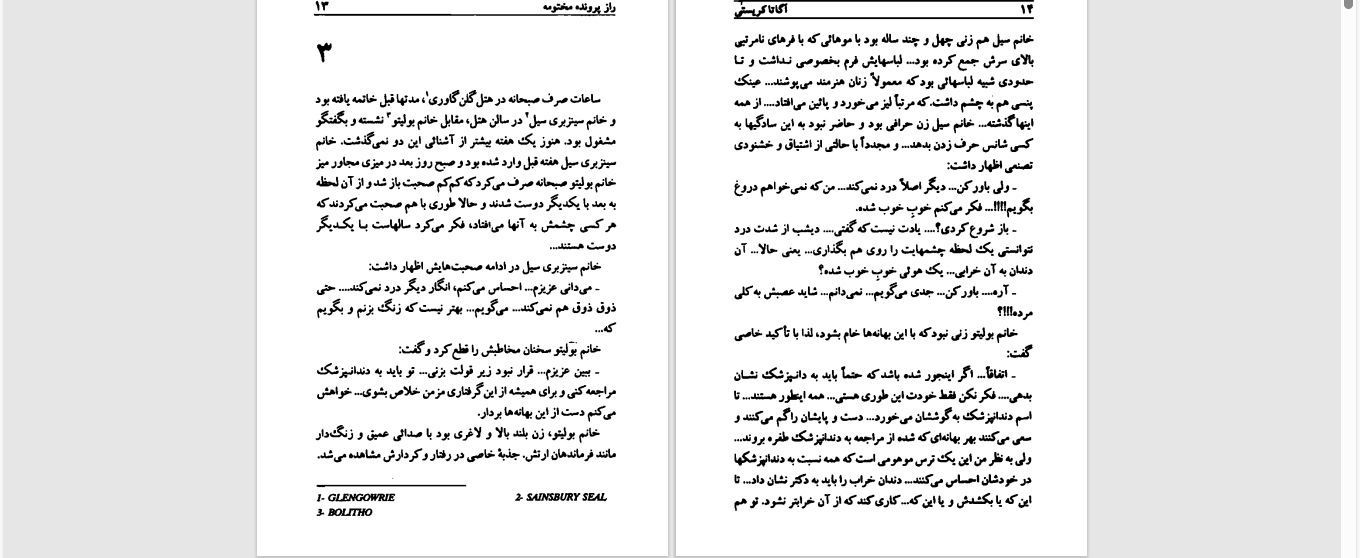 راز پرونده مختومه ۱۳
۳
ساعات صرف صبحانه در هتل گلن گاوری۱، مدتها قبل خاتمه یافته بود
و خانم سینزبری سیل۲ در سالن هتل، مقابل خانم بولیتو۳ نشسته و بگفتگو
مشغول بود. هنوز یک هفته بیشتر از آشنائی این دو نمی‌گذشت. خانم
سینزبری سیل هفته قبل وارد شده بود و صبح روز بعد در میزی مجاور میز
خانم بولیتو صبحانه صرف می‌کرد که کم‌کم صحبت باز شد و از آن لحظه
به بعد با یکدیگر دوست شدند و حالا طوری با هم صحبت می‌کردند که
هر کسی چشمش به آنها می‌افتاد، فکر می‌کرد سالهاست بـا یکـدیگر
دوست هستند...
خانم سینزبری سیل در ادامه صحبت‌هایش اظهار داشت:
ـ می‌دانی عزیزم... احساس می‌کنم، انگار دیگر درد نمی‌کند.... حتی
ذوق ذوق هم نمی‌کند... می‌گویم... بهتر نیست که زنگ بزنم و بگویم
که...
خانم بولیتو سخنان مخاطبش را قطع کرد و گفت:
ـ ببین عزیزم... قرار نبود زیر قولت بزنی... تو باید به دندانـپزشک
مراجعه کنی و برای همیشه از این گرفتاری مزمن خلاص بشوی... خواهش
می‌کنم دست از این بهانه‌ها بردار.
خانم بولیتو، زن بلند بالا و لاغری بود با صدائی عمیق و زنگ‌دار
مانند فرماندهان ارتش. جذبهٔ خاصی در رفتار و کردارش مشاهده می‌شد.
1- GLENGOWRIE 2- SAINSBURY SEAL
3- BOLITHO
۱۴ آگاتا کریستی
خانم سیل هم زنی چهل و چند ساله بود با موهائی که با فرهای نامرتبی
بالای سرش جمع کرده بود... لباسهایش فرم بخصوصی نـداشت و تـا
حدودی شبیه لباسهائی بود که معمولاً زنان هنرمند می‌پوشند... عینک
پنسی هم به چشم داشت.که مرتباً لیز می‌خورد و پائین می‌افتاد.... از همه
اینها گذشته... خانم سیل زن حرافی بود و حاضر نبود به این سادگیها به
کسی شانس حرف زدن بدهد... و مجدداً با حالتی از اشتیاق و خشنودی
تصنعی اظهار داشت:
ـ ولی باور کن... دیگر اصلاً درد نمی‌کند... من که نمی‌خواهم دروغ
بگویم!!!!... فکر می‌کنم خوبِ خوب شده.
ـ باز شروع کردی؟.... یادت نیست که گفتی.... دیشب از شدت درد
نتوانستی یک لحظه چشمهایت را روی هم بگذاری... یعنی حالا... آن
دندان به آن خرابی... یک هوئی خوبِ خوب شده؟
ـ آره.... باور کن... جدی می‌گویم... نمی‌دانم... شاید عصبش به کلی
مرده!!!؟
خانم بولیتو زنی نبود که با این بهانه‌ها خام بشود، لذا با تأکید خاصی
گفت:
ـ اتفاقاً... اگر اینجور شده باشد که حتماً باید به دانـپزشک نشـان
بدهی.... فکر نکن فقط خودت این طوری هستی... همه اینطور هستند... تا
اسم دندانپزشک به گوششان می‌خورد... دست و پایشان را گم می‌کنند و
سعی می‌کنند بهر بهانه‌ای که شده از مراجعه به دندانپزشک طفره بروند...
ولی به نظر من این یک ترس موهومی است که همه نسبت به دندانپزشکها
در خودشان احساس می‌کنند... دندان خراب را باید به دکتر نشان داد... تا
این که یا بکشدش و یا این که... کاری کند که از آن خرابتر نشود. تو هم